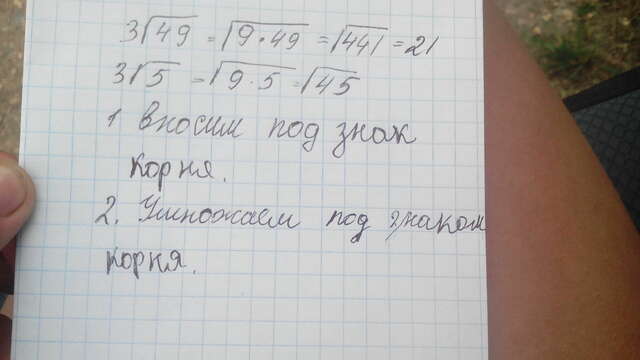 3√49 = √9·49 = √441 = 21
3√5 = √9·5 = √45
1 вносим под знак
корня.
2. Умножаем под знаком
корня.